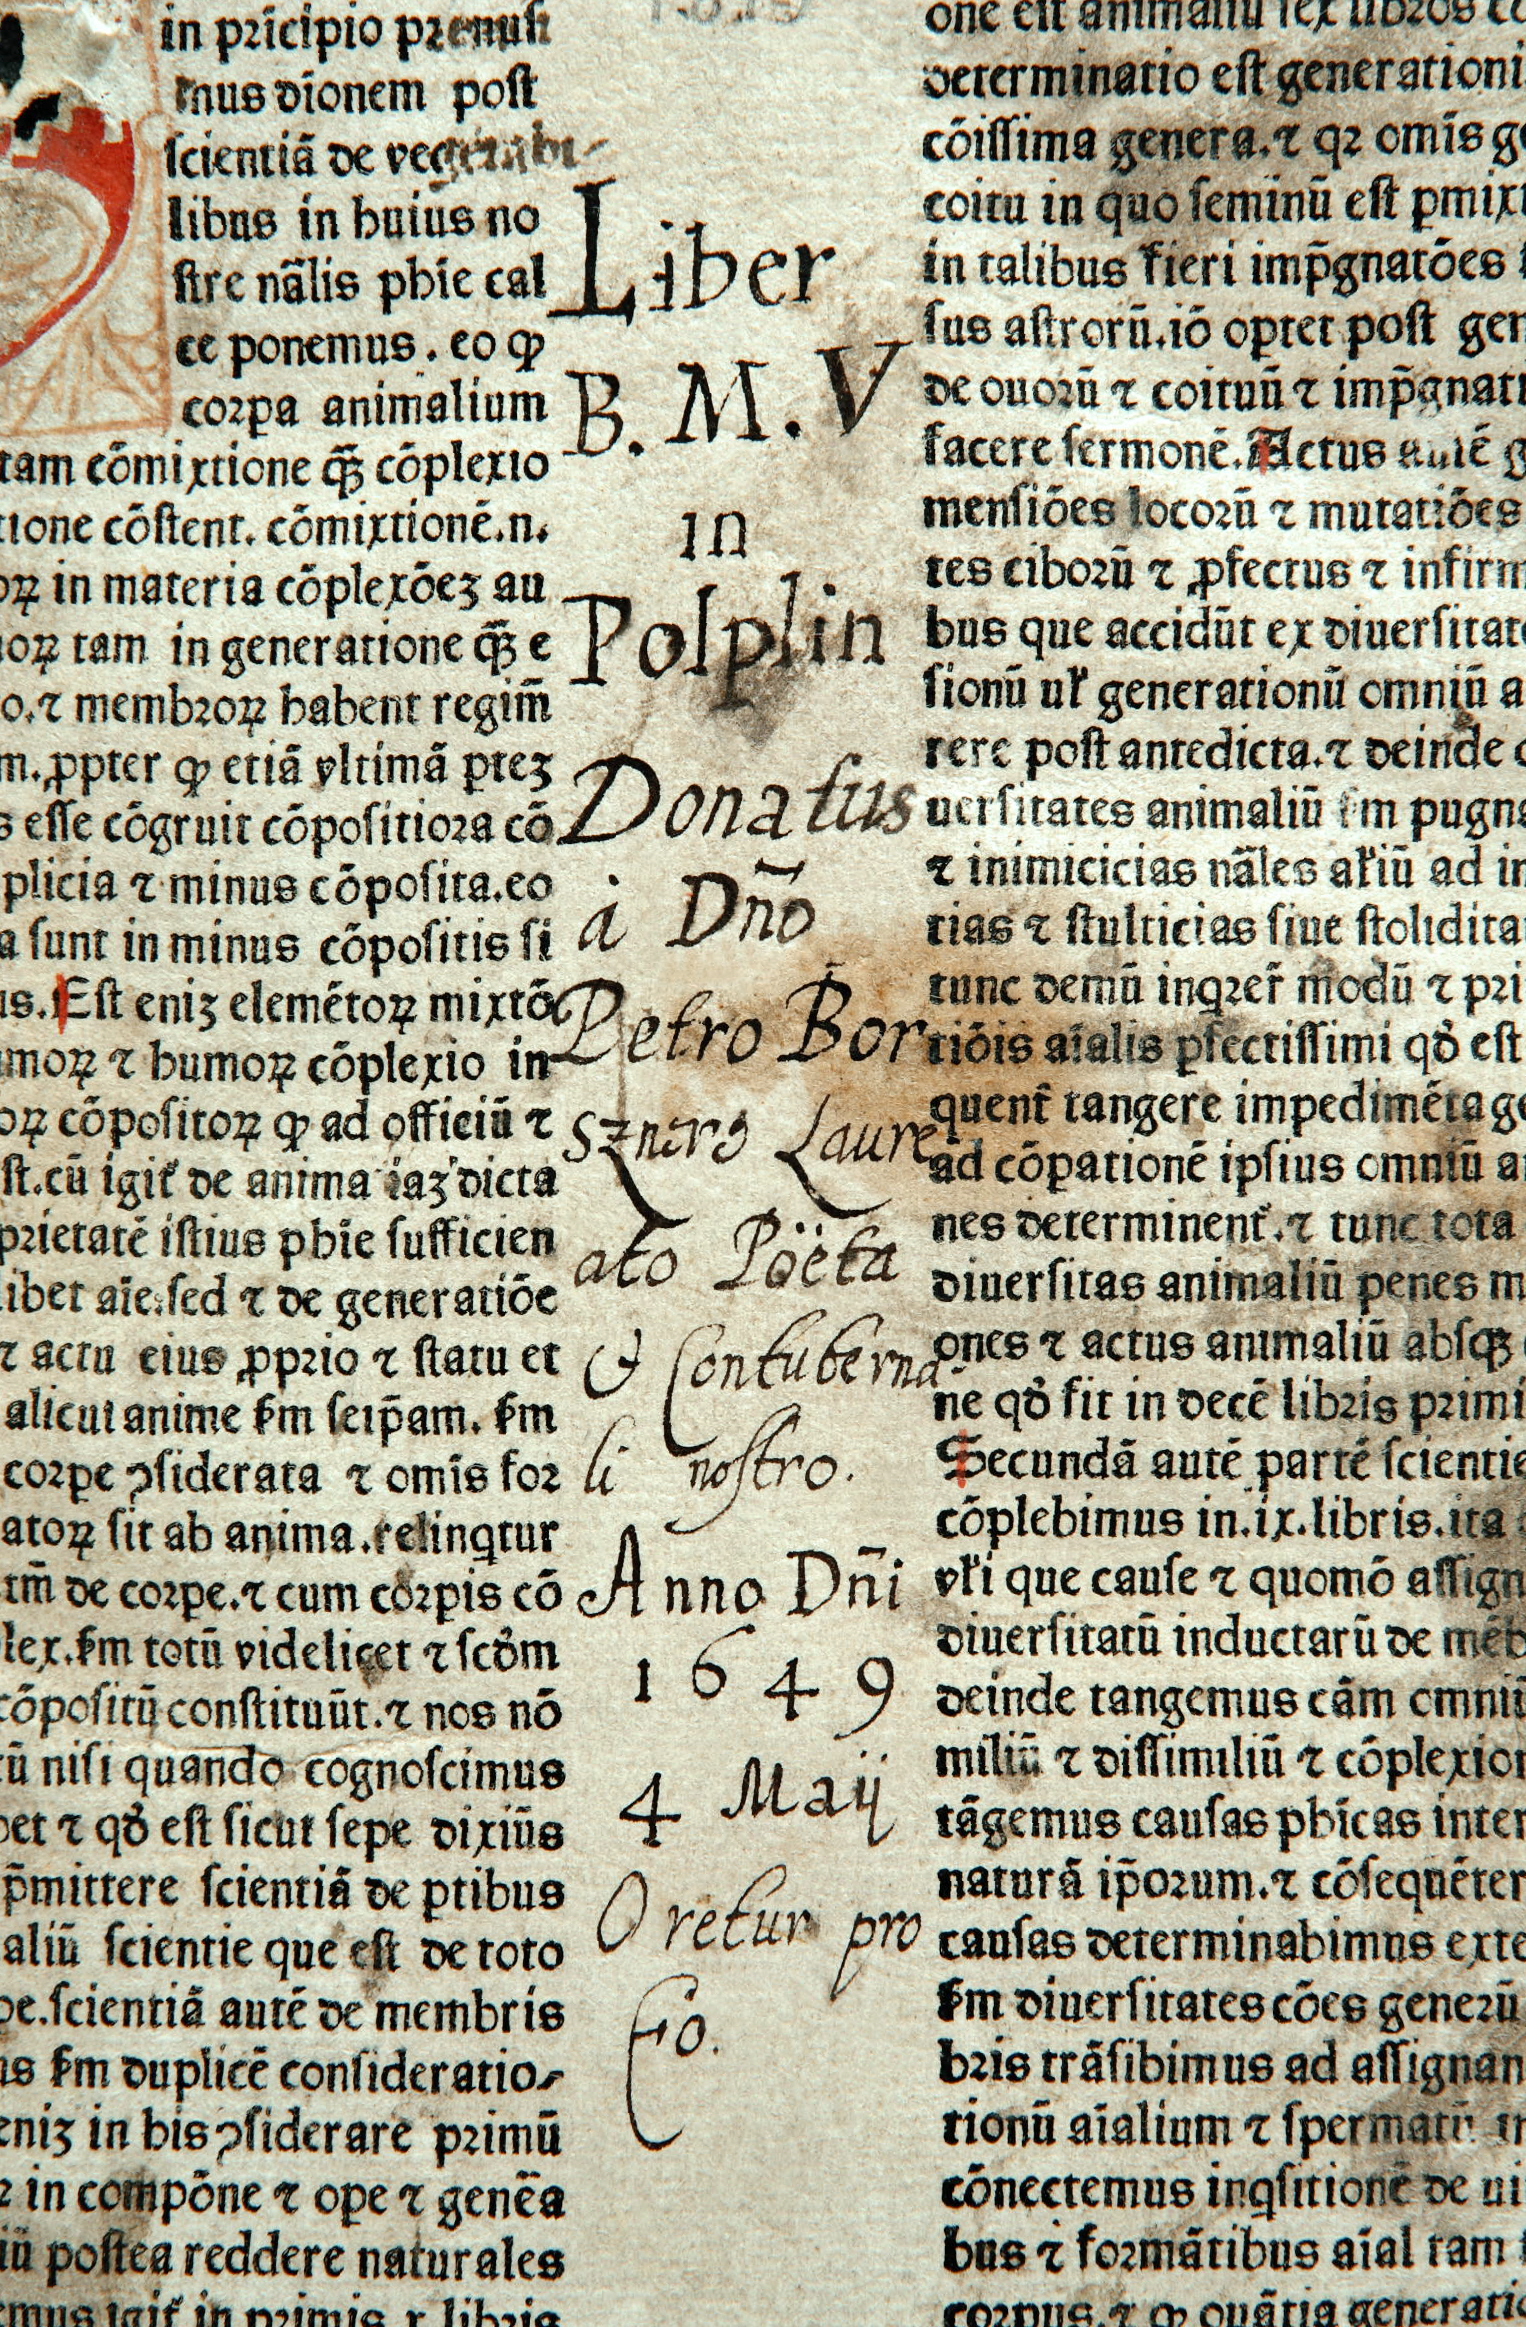 in pꝛīcipio pꝛemiſi
mus diōnem poſt
ſcientiā de vegetabi-
libus in huius no
ſtre nālis phie cal
ce ponemus. eo ꝙ
coꝛpa animalium
tam cōmixtione qꝫ cōplexio
tione cōſtent. cōmixtionē.n.
oꝝ in materia cōplexōeꝫ au
oꝝ tam in generatione qꝫ e
o. ⁊ membꝛoꝝ habent regim̄
m. ꝓpter ꝙ etiā vltimā ꝑteꝫ
s eſſe cōgruit cōpoſitioꝛa cō
plicia ⁊ minus cōpoſita. eo
a ſunt in minus cōpoſitis ſi
us. Eſt eniꝫ elemētoꝝ mixtō
moꝝ ⁊ humoꝝ cōplexio in
oꝝ cōpoſitoꝝ ꝙ ad officiū ⁊
ſt. cū igit̄ de anima iaꝫ dicta
prietatē iſtius phie ſufficien
libet aīe. ſed ⁊ de generatiōe
⁊ actu eius ꝓpꝛio ⁊ ſtatu et
alicui anime ẜm ſeip̄am. ẜm
coꝛpe ꝯſiderata ⁊ omīs foꝛ
atoꝝ ſit ab anima. relinqtur
tm̄ de coꝛpe. ⁊ cum coꝛpis cō
lex. ẜm totū videlicet ⁊ ſcdm
cōpoſitū conſtituūt. ⁊ nos nō
cū niſi quando cognoſcimus
bet ⁊ qd̄ eſt ſicut ſepe diximꝰ
p̄mittere ſcientiā de ꝑtibus
aliū ſcientie que eſt de toto
pe. ſcientiā autē de membris
us ẜm duplicē conſideratio-
eniꝫ in his ꝯſiderare pꝛimū
in compōne ⁊ ope ⁊ genēa
iū poſtea reddere naturales
emus igit̄ in pꝛimis.x. libꝛis
Liber
B. M. V
in
Polplin
Donatus
à Dño
Petro Bor
sznero Laure
ato Pöëta
& Contuberna-
li nostro.
Anno Dñi
1649
4 Maij
Oretur pro
Eo.
one eſt animaliū ſex libꝛos
determinatio eſt generationi
cōiſſima genera. ⁊ qꝛ omīs ge
coitu in quo ſeminū eſt ꝑmixt
in talibus fieri imp̄gnatōes
ſus aſtroꝛū. iō opꝛtet poſt gen
de ouoꝛū ⁊ coituū ⁊ imp̄gnati
facere ſermonē. Actus autē g
menſiōes locoꝛū ⁊ mutatiōes
tes ciboꝛū ⁊ ꝓfectus ⁊ infirm
bus que accidūt ex diuerſitate
ſionū ul̄ generationū omniū a
rere poſt antedicta. ⁊ deinde
uerſitates animaliū ẜm pugna
⁊ inimicicias nāles al̄iū ad in
tias ⁊ ſtulticias ſiue ſtolidita
tunc demū inqꝛet̄ modū ⁊ pꝛi
tiōis aīalis ꝑfectiſſimi qd̄ eſt
quent̄ tangere impedimēta ge
ad cōpationē ipſius omniū a
nes determinent̄. ⁊ tunc tota
diuerſitas animaliū penes m
ones ⁊ actus animaliū abſqꝫ
ne qd̄ fit in decē libꝛis pꝛimi
Secundā autē partē ſcientie
cōplebimus in.ix.libris. ita
vl̄i que cauſe ⁊ quomō aſſign
diuerſitatū inductarū de mēb
deinde tangemus cām omniū
miliū ⁊ diſſimiliū ⁊ cōplexion
tāgemus cauſas phīcas inter
naturā ip̄oꝛum. ⁊ cōſequēter
cauſas determinabimus exte
ẜm diuerſitates cōes generū
bꝛis trāſibimus ad aſſignan
tionū aīalium ⁊ ſpermatū in
cōnectemus inqſitionē de ui
bus ⁊ foꝛmātibus aīal tam
coꝛpus. ⁊ ꝙ quātia generatio